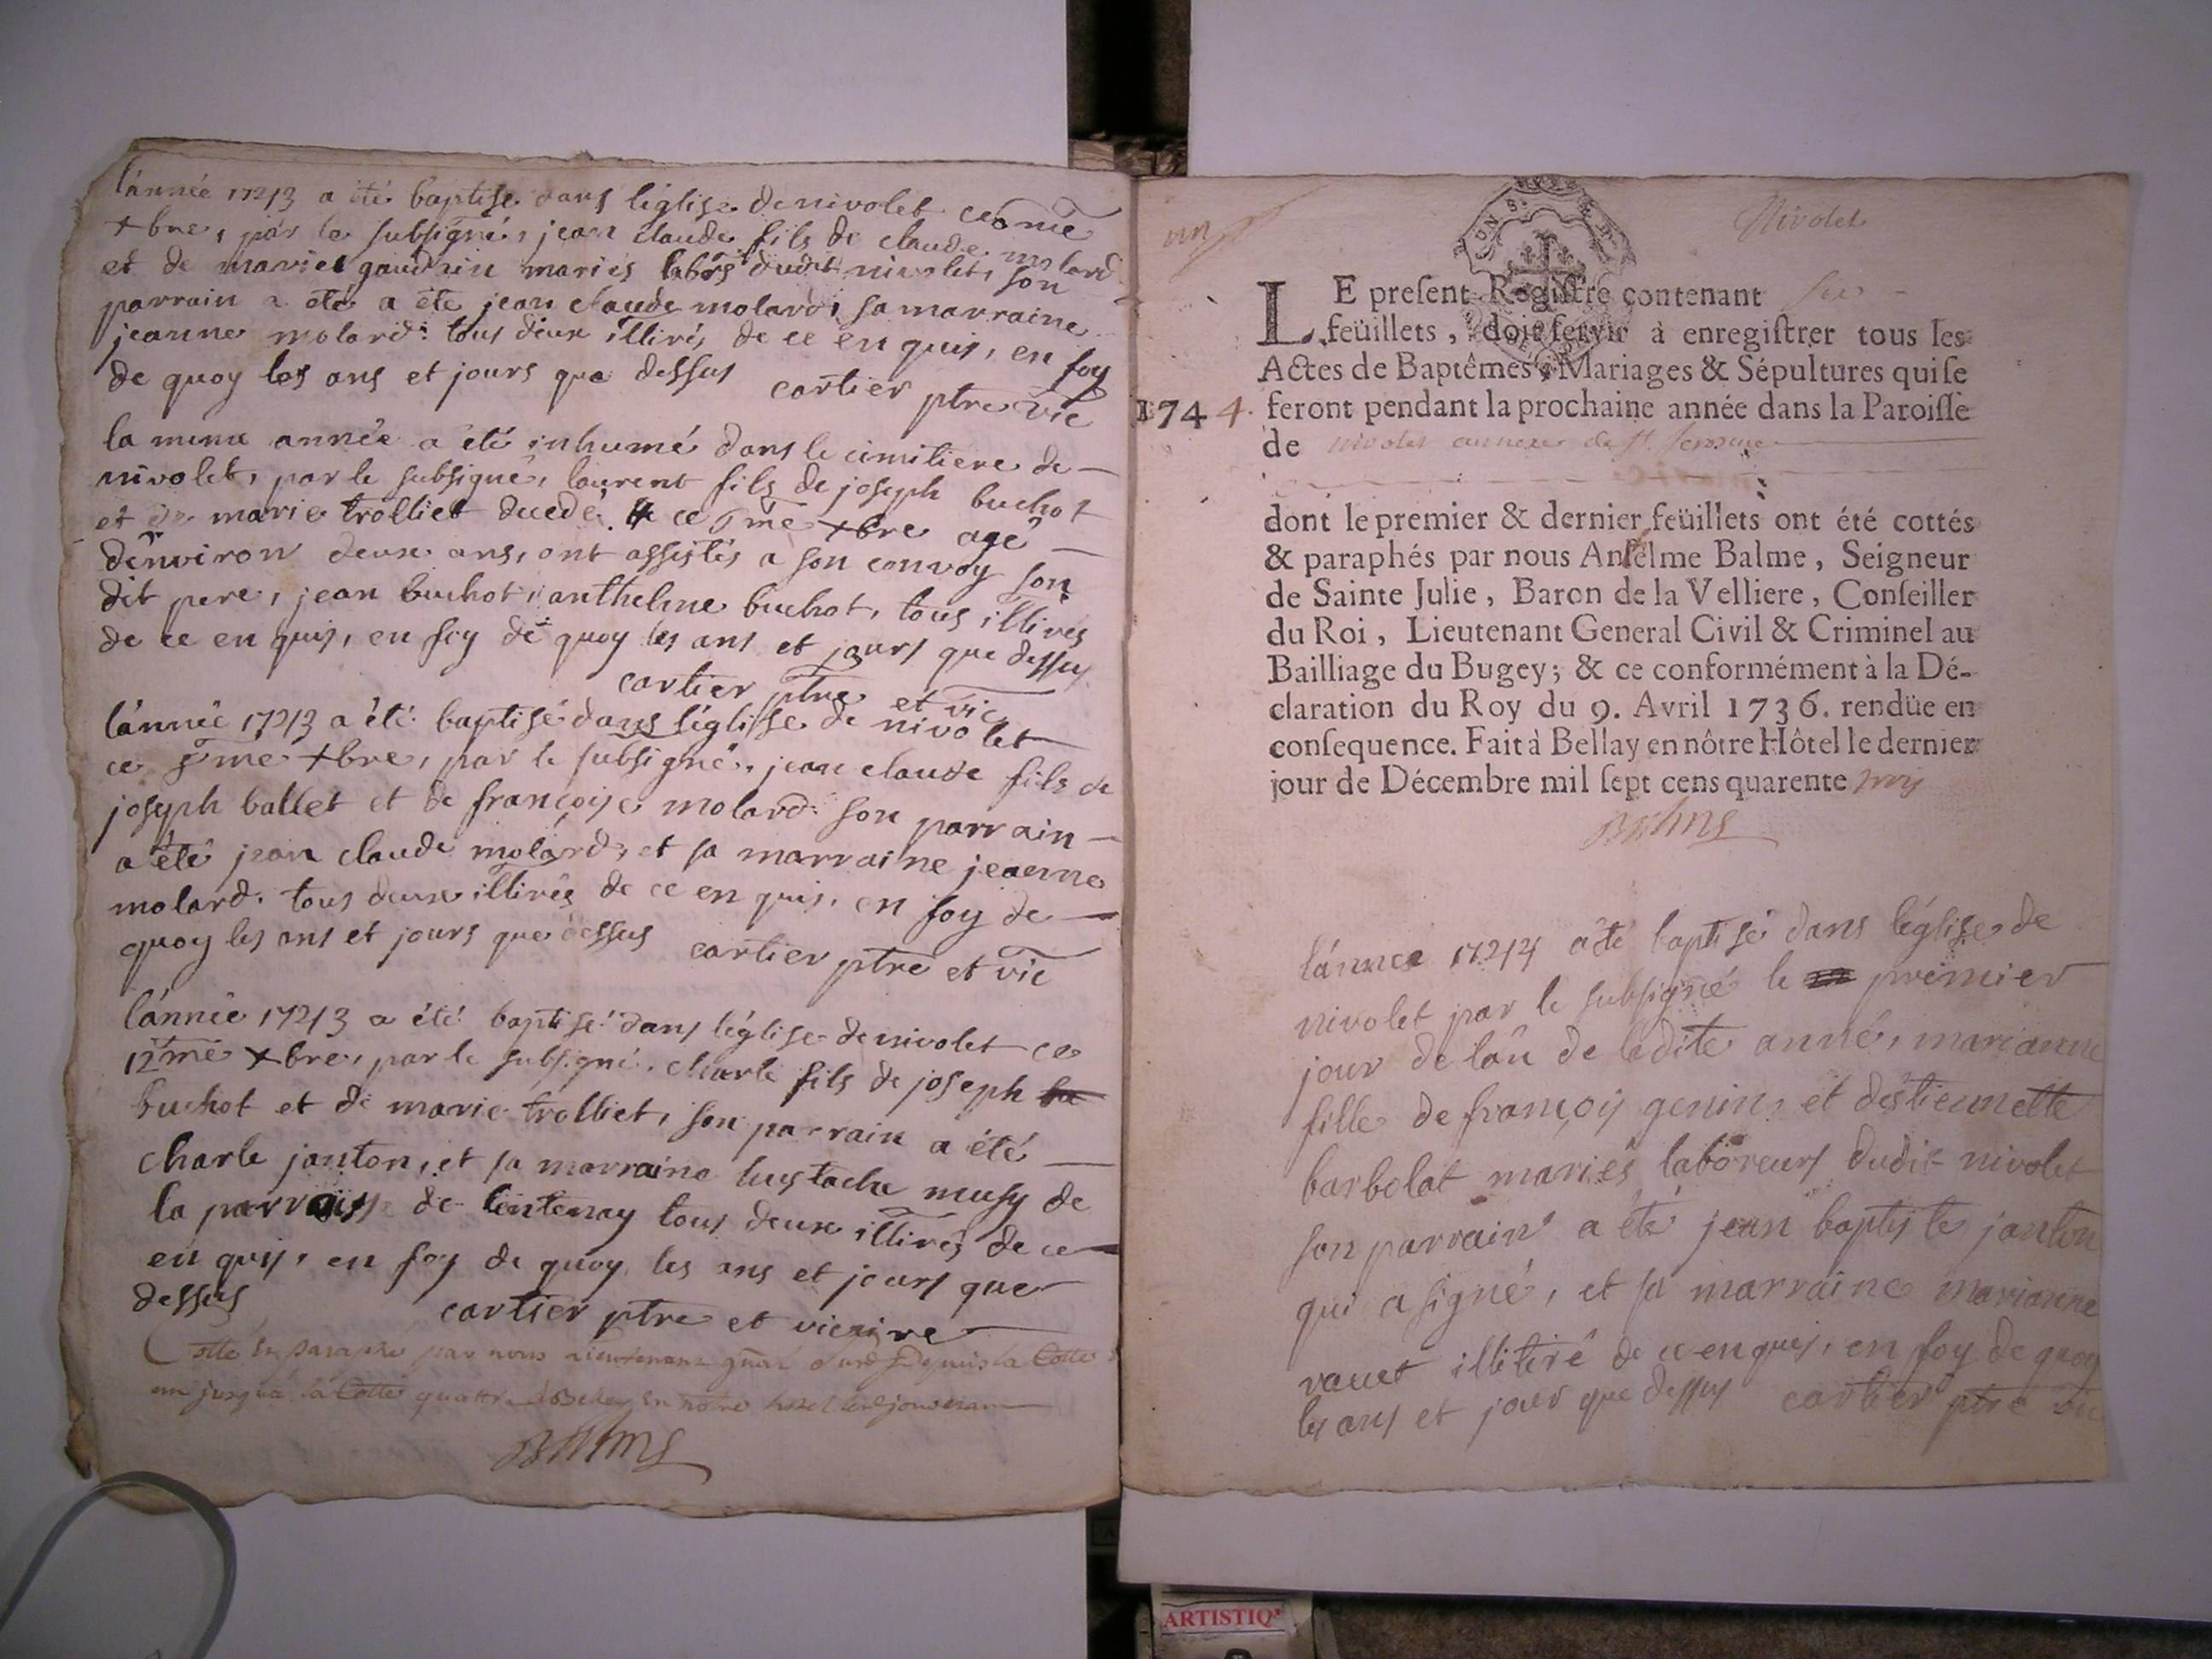 l'année 1743 a été baptisé dans l'église de nivolet ce
xbre, par le subsigné, jean claude fils de claude molard
et de marie gaudrin mariés labrs dudit nivolet, son
parrain a été a été jean claude molard, sa marraine
jeanne molard: tous deux illirés de ce en quis, en foy
de quoy les ans et jours que dessus cartier ptre vic
la meme année a été inhumé dans le cimitiere de
nivolet, par le subsigné, laurent fils de joseph buchot
et de marie trolliet decedé ce me xbre agé
d'environ deux ans, ont assistés a son convoy son
dit pere, jean buchot, anthelme buchot, tous illirés
de ce en quis, en foy de quoy les ans et jours que dessus
cartier ptre et vic
l'année 1743 a été baptisé dans l'église de nivolet
ce 8me xbre, par le subsigné, jean claude fils de
joseph ballet et de françoise molard son parrain
a été jean claude molard, et sa marraine jeanne
molard. tous deux illirés de ce en quis, en foy de
quoy les ans et jours que dessus cartier ptre et vic
l'année 1743 a été baptisé dans l'église de nivolet ce
12me xbre, par le subsigné, charle fils de joseph
buchot et de marie trolliet, son parrain a été
charle janton, et sa marraine eustache musy de
la parroisse de lentenay tous deux illirés de ce
en quis, en foy de quoy les ans et jours que
dessus cartier ptre et vicaire
Cotté et paraphé par nous lieutenant gnal susd depuis la Cotte
un jusqu'a la Cotte quattre a Belley en notre hotel led jour
Balme
un
Nivolet
LE present Registre contenant six
feüillets, doit servir à enregistrer tous les
Actes de Baptêmes, Mariages & Sépultures qui se
1744. feront pendant la prochaine année dans la Paroisse
de nivolet annexe de St.
dont le premier & dernier feüillets ont été cottés
& paraphés par nous Anselme Balme, Seigneur
de Sainte Julie, Baron de la Velliere, Conseiller
du Roi, Lieutenant General Civil & Criminel au
Bailliage du Bugey; & ce conformément à la Dé-
claration du Roy du 9. Avril 1736. rendüe en
consequence. Fait à Bellay en nôtre Hôtel le dernier
jour de Décembre mil sept cens quarente trois
Balme
l'année 1744 a été baptisé dans l'église de
nivolet par le subsigné le premier
jour de l'an de ladite anné, marianne
fille de françois genin, et d'estiennette
barbolat mariés laboreurs dudit nivolet
son parrain a été jean baptiste janton
qui a signé, et sa marraine marianne
vauet illitiré de ce en quis, en foy de quoy
les ans et jour que dessus cartier ptre vic
ARTISTIQ